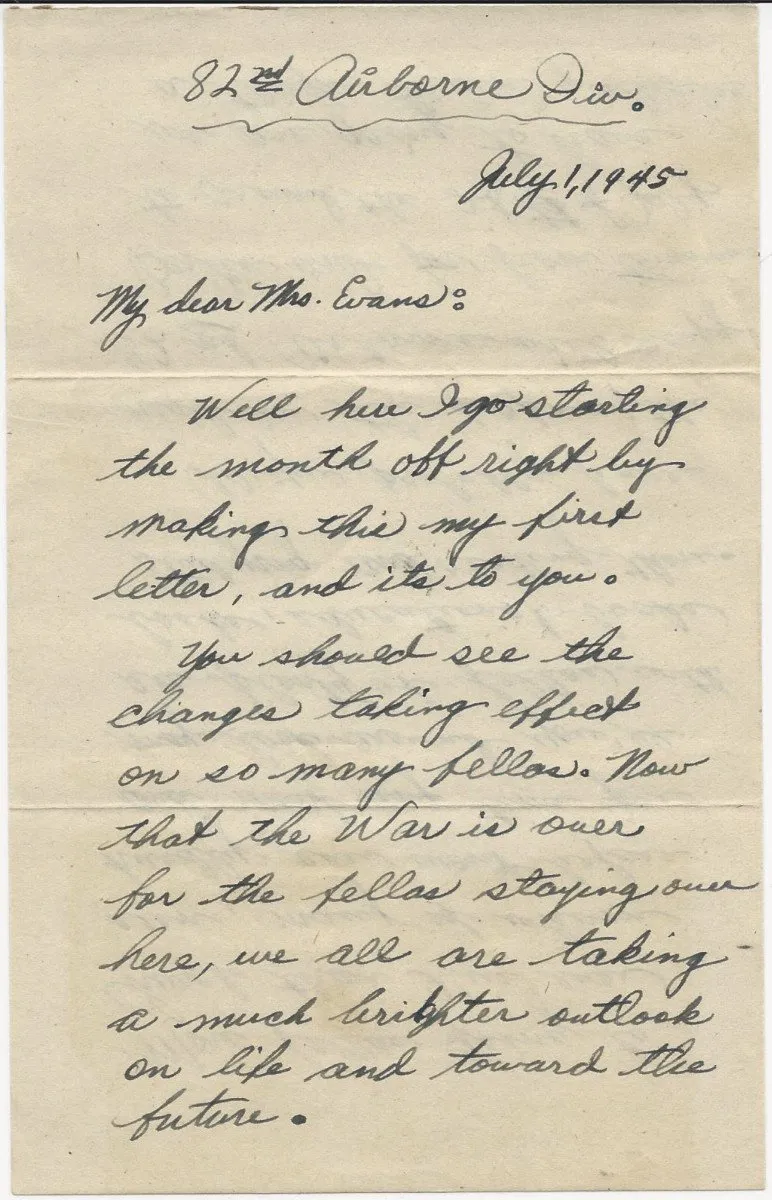 82nd Airborne Div.
July 1, 1945
My dear Mrs. Evans:
Well here I go starting
the month off right by
making this my first
letter, and its to you.
You should see the
changes taking effect
on so many fellas. Now
that the War is over
for the fellas staying over
here, we all are taking
a much brighter outlook
on life and toward the
future.